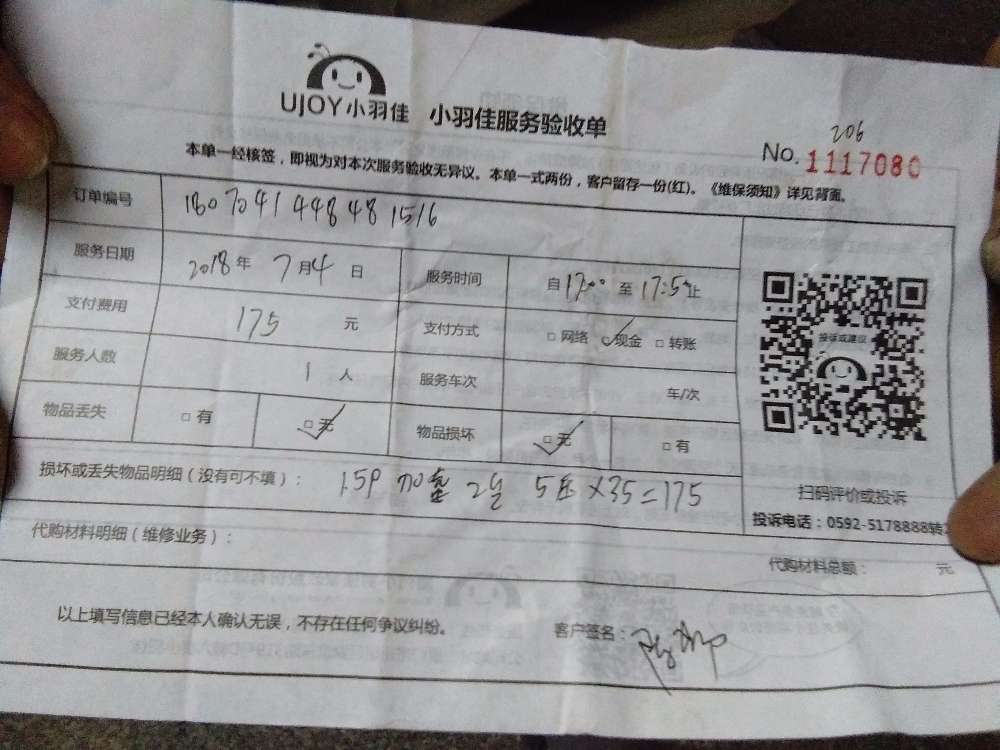 UJOY小羽佳 小羽佳服务验收单
206
No. 1117080
本单一经核签，即视为对本次服务验收无异议。本单一式两份，客户留存一份(红)。《维保须知》详见背面。
订单编号 1807041448481516
服务日期 2018年 7月4日 服务时间 自17:00至17:50止
支付费用 175 元 支付方式 □网络 ☑现金 □转账
服务人数 1人 服务车次 车/次
物品丢失 □有 ☑无 物品损坏 ☑无 □有
投诉或建议
扫码评价或投诉
投诉电话：0592-5178888转
损坏或丢失物品明细（没有可不填）： 1.5P 加 2台 5压×35=175
代购材料明细（维修业务）：
代购材料总额： 元
以上填写信息已经本人确认无误，不存在任何争议纠纷。 客户签名：